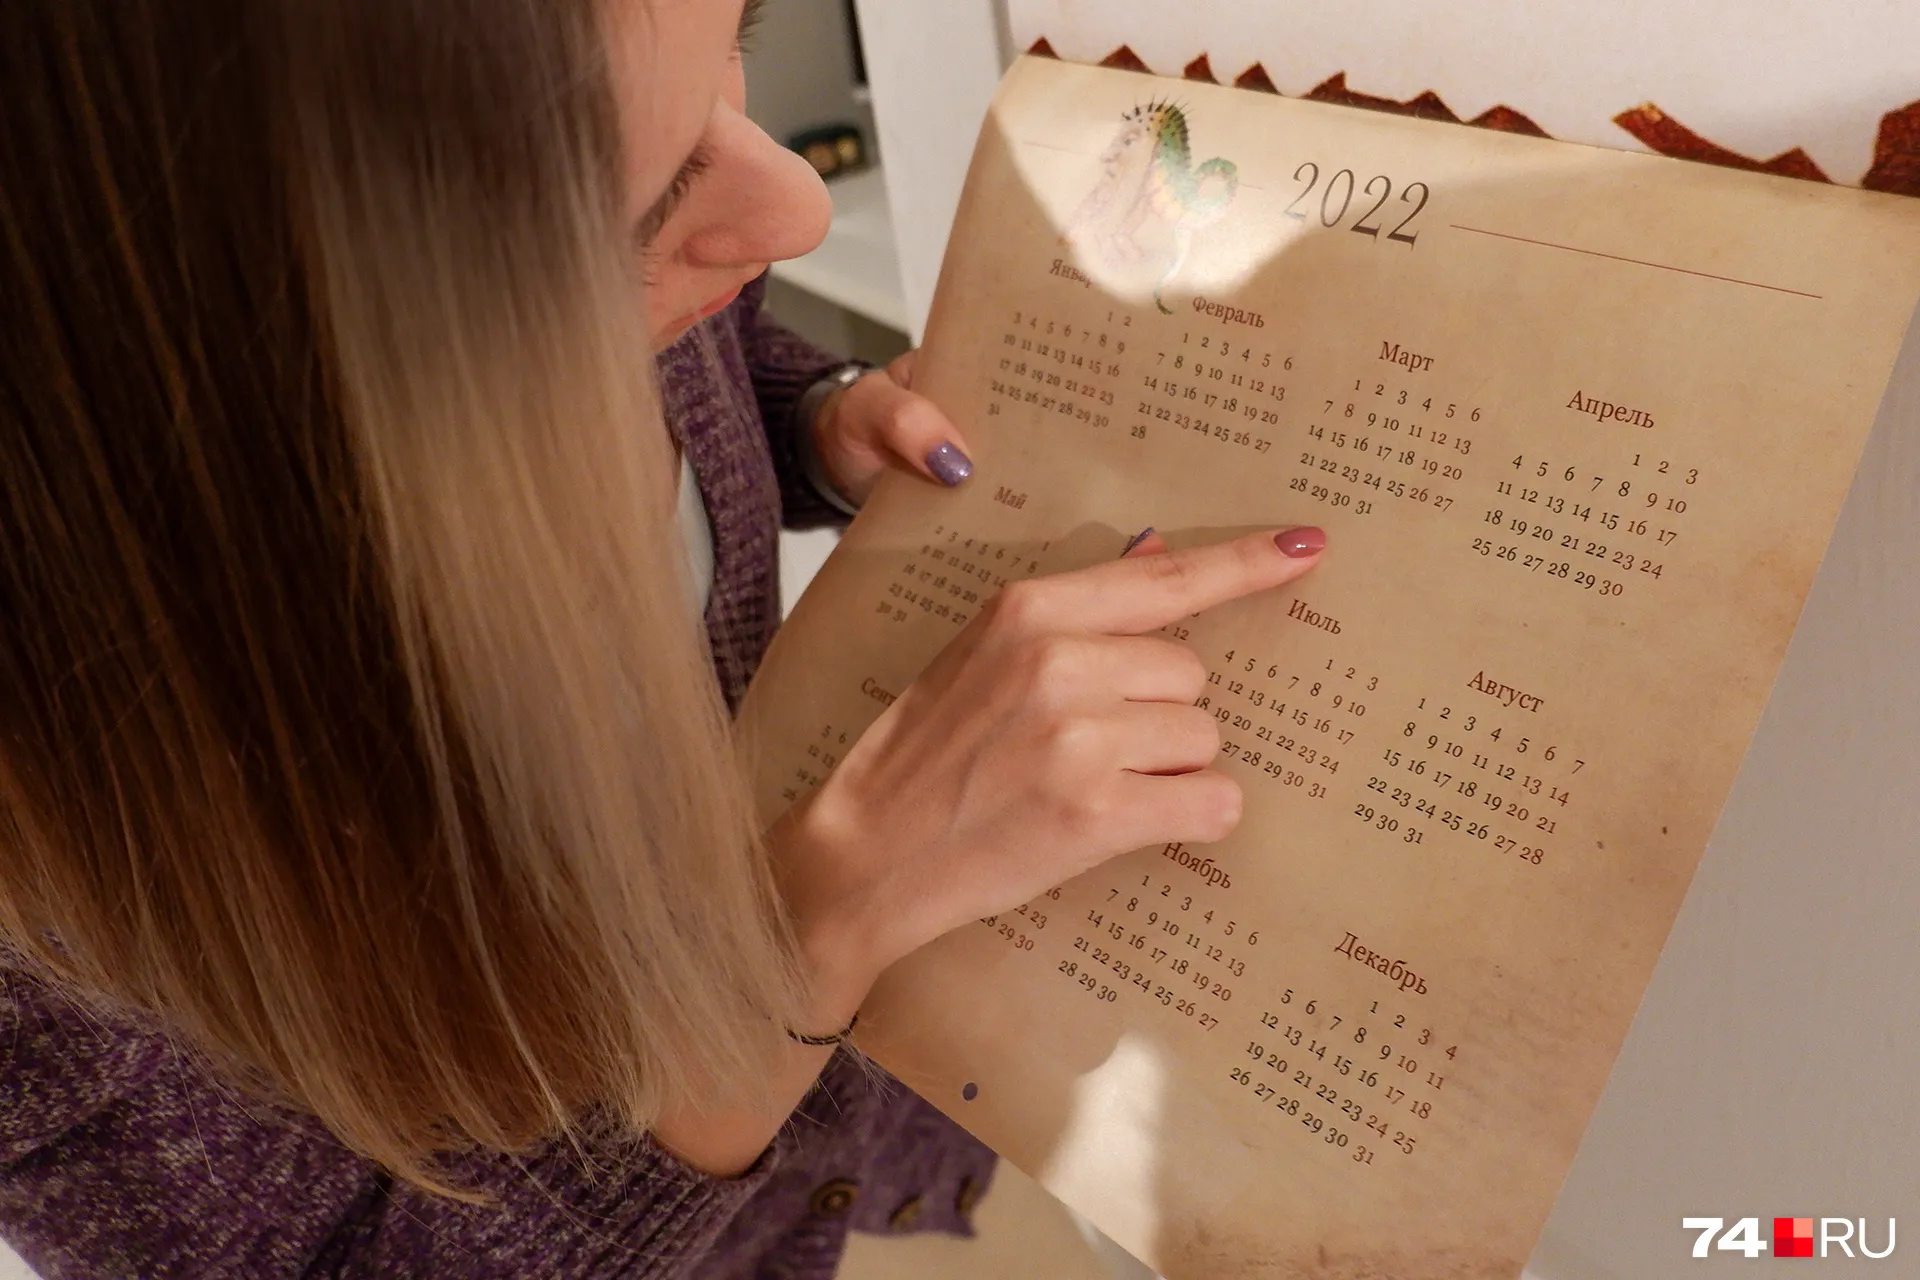 2022
Январ
1 2
3 4 5 6 7 8 9
10 11 12 13 14 15 16
17 18 19 20 21 22 23
24 25 26 27 28 29 30
31
Февраль
1 2 3 4 5 6
7 8 9 10 11 12 13
14 15 16 17 18 19 20
21 22 23 24 25 26 27
28
Март
1 2 3 4 5 6
7 8 9 10 11 12 13
14 15 16 17 18 19 20
21 22 23 24 25 26 27
28 29 30 31
Апрель
1 2 3
4 5 6 7 8 9 10
11 12 13 14 15 16 17
18 19 20 21 22 23 24
25 26 27 28 29 30
Май
1
2 3 4 5 6 7 8
9 10 11 12 13 14
16 17 18 19 20
23 24 25 26 27
30 31
12
Июль
1 2 3
4 5 6 7 8 9 10
11 12 13 14 15 16 17
18 19 20 21 22 23 24
27 28 29 30 31
Август
1 2 3 4 5 6 7
8 9 10 11 12 13 14
15 16 17 18 19 20 21
22 23 24 25 26 27 28
29 30 31
Сент
5 6
12 13
19
16
23
29 30
Ноябрь
1 2 3 4 5 6
7 8 9 10 11 12 13
14 15 16 17 18 19 20
21 22 23 24 25 26 27
28 29 30
Декабрь
1 2 3 4
5 6 7 8 9 10 11
12 13 14 15 16 17 18
19 20 21 22 23 24 25
26 27 28 29 30 31
74 RU